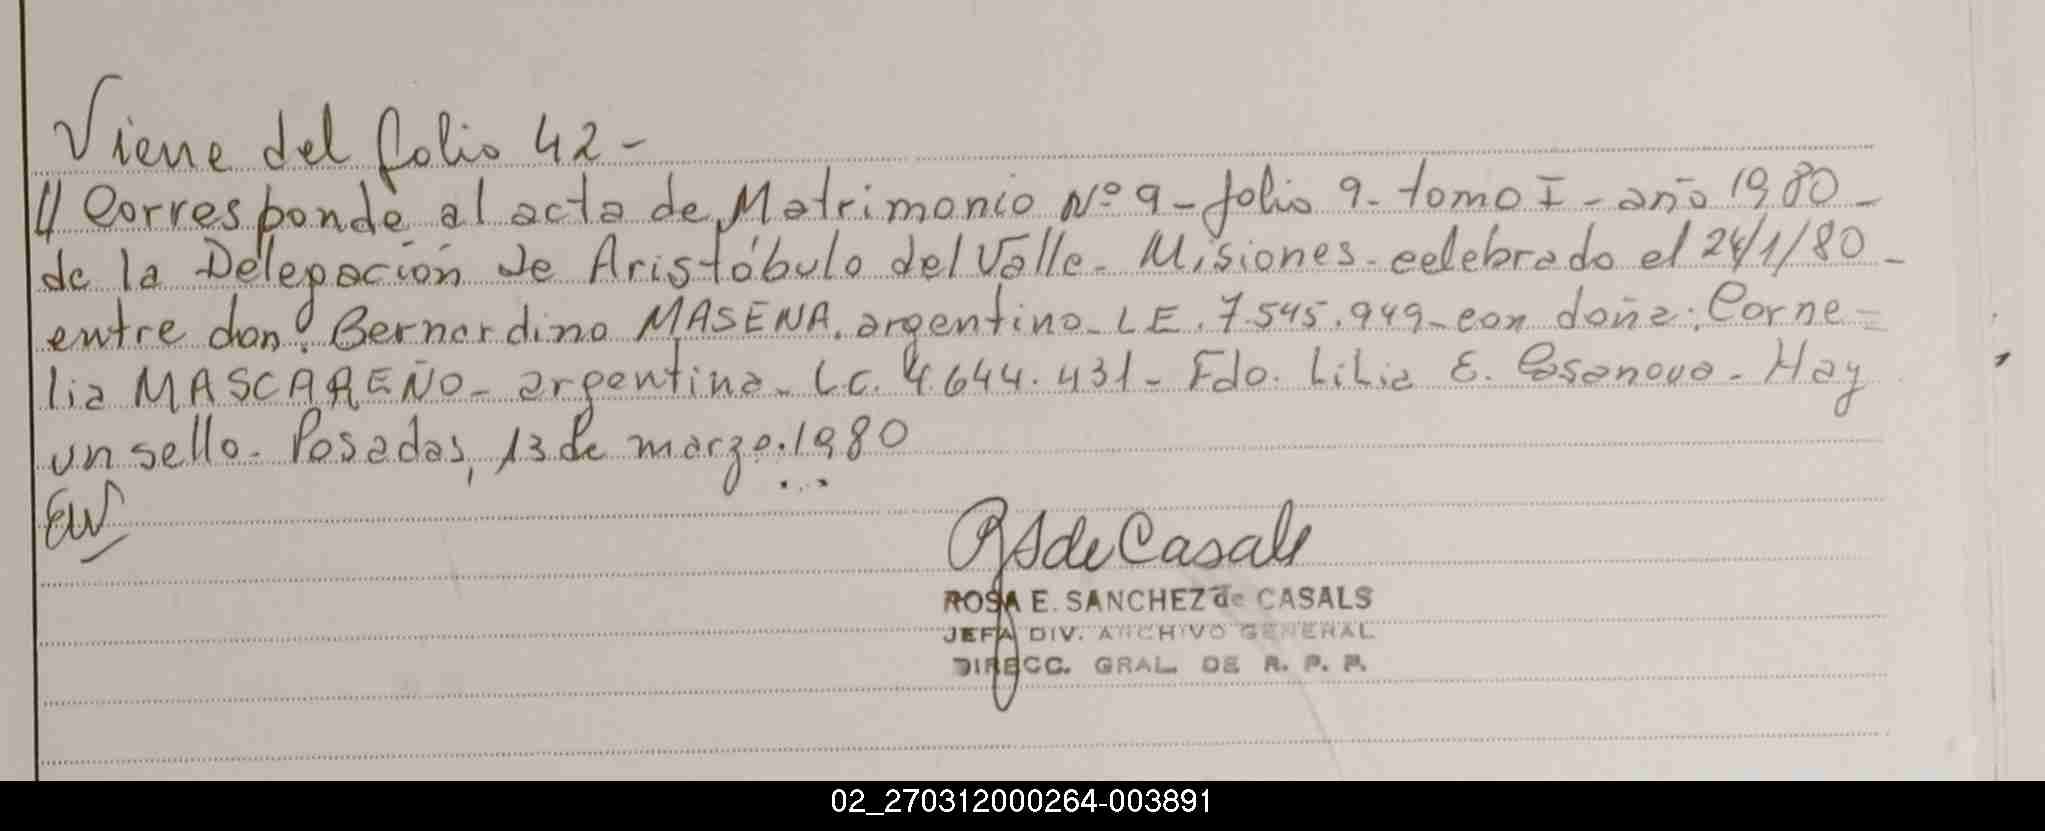 Viene del folio 42-
// Corresponde al acta de Matrimonio Nº 9- folio 9- tomo I - año 1980-
de la Delegación de Aristóbulo del Valle- Misiones- celebrado el 24/1/80-
entre don: Bernardino MASENA, argentino- LE. 7.545.949- con doña: Corne-
lia MASCAREÑO- argentina- LC. 4.644.431- Fdo. Lilia E. Casanova- Hay
un sello- Posadas, 13 de marzo 1980
EW
RSdeCasals
ROSA E. SANCHEZ de CASALS
JEFA DIV. ARCHIVO GENERAL
DIRECC. GRAL. DE R. P. P.
02_270312000264-003891